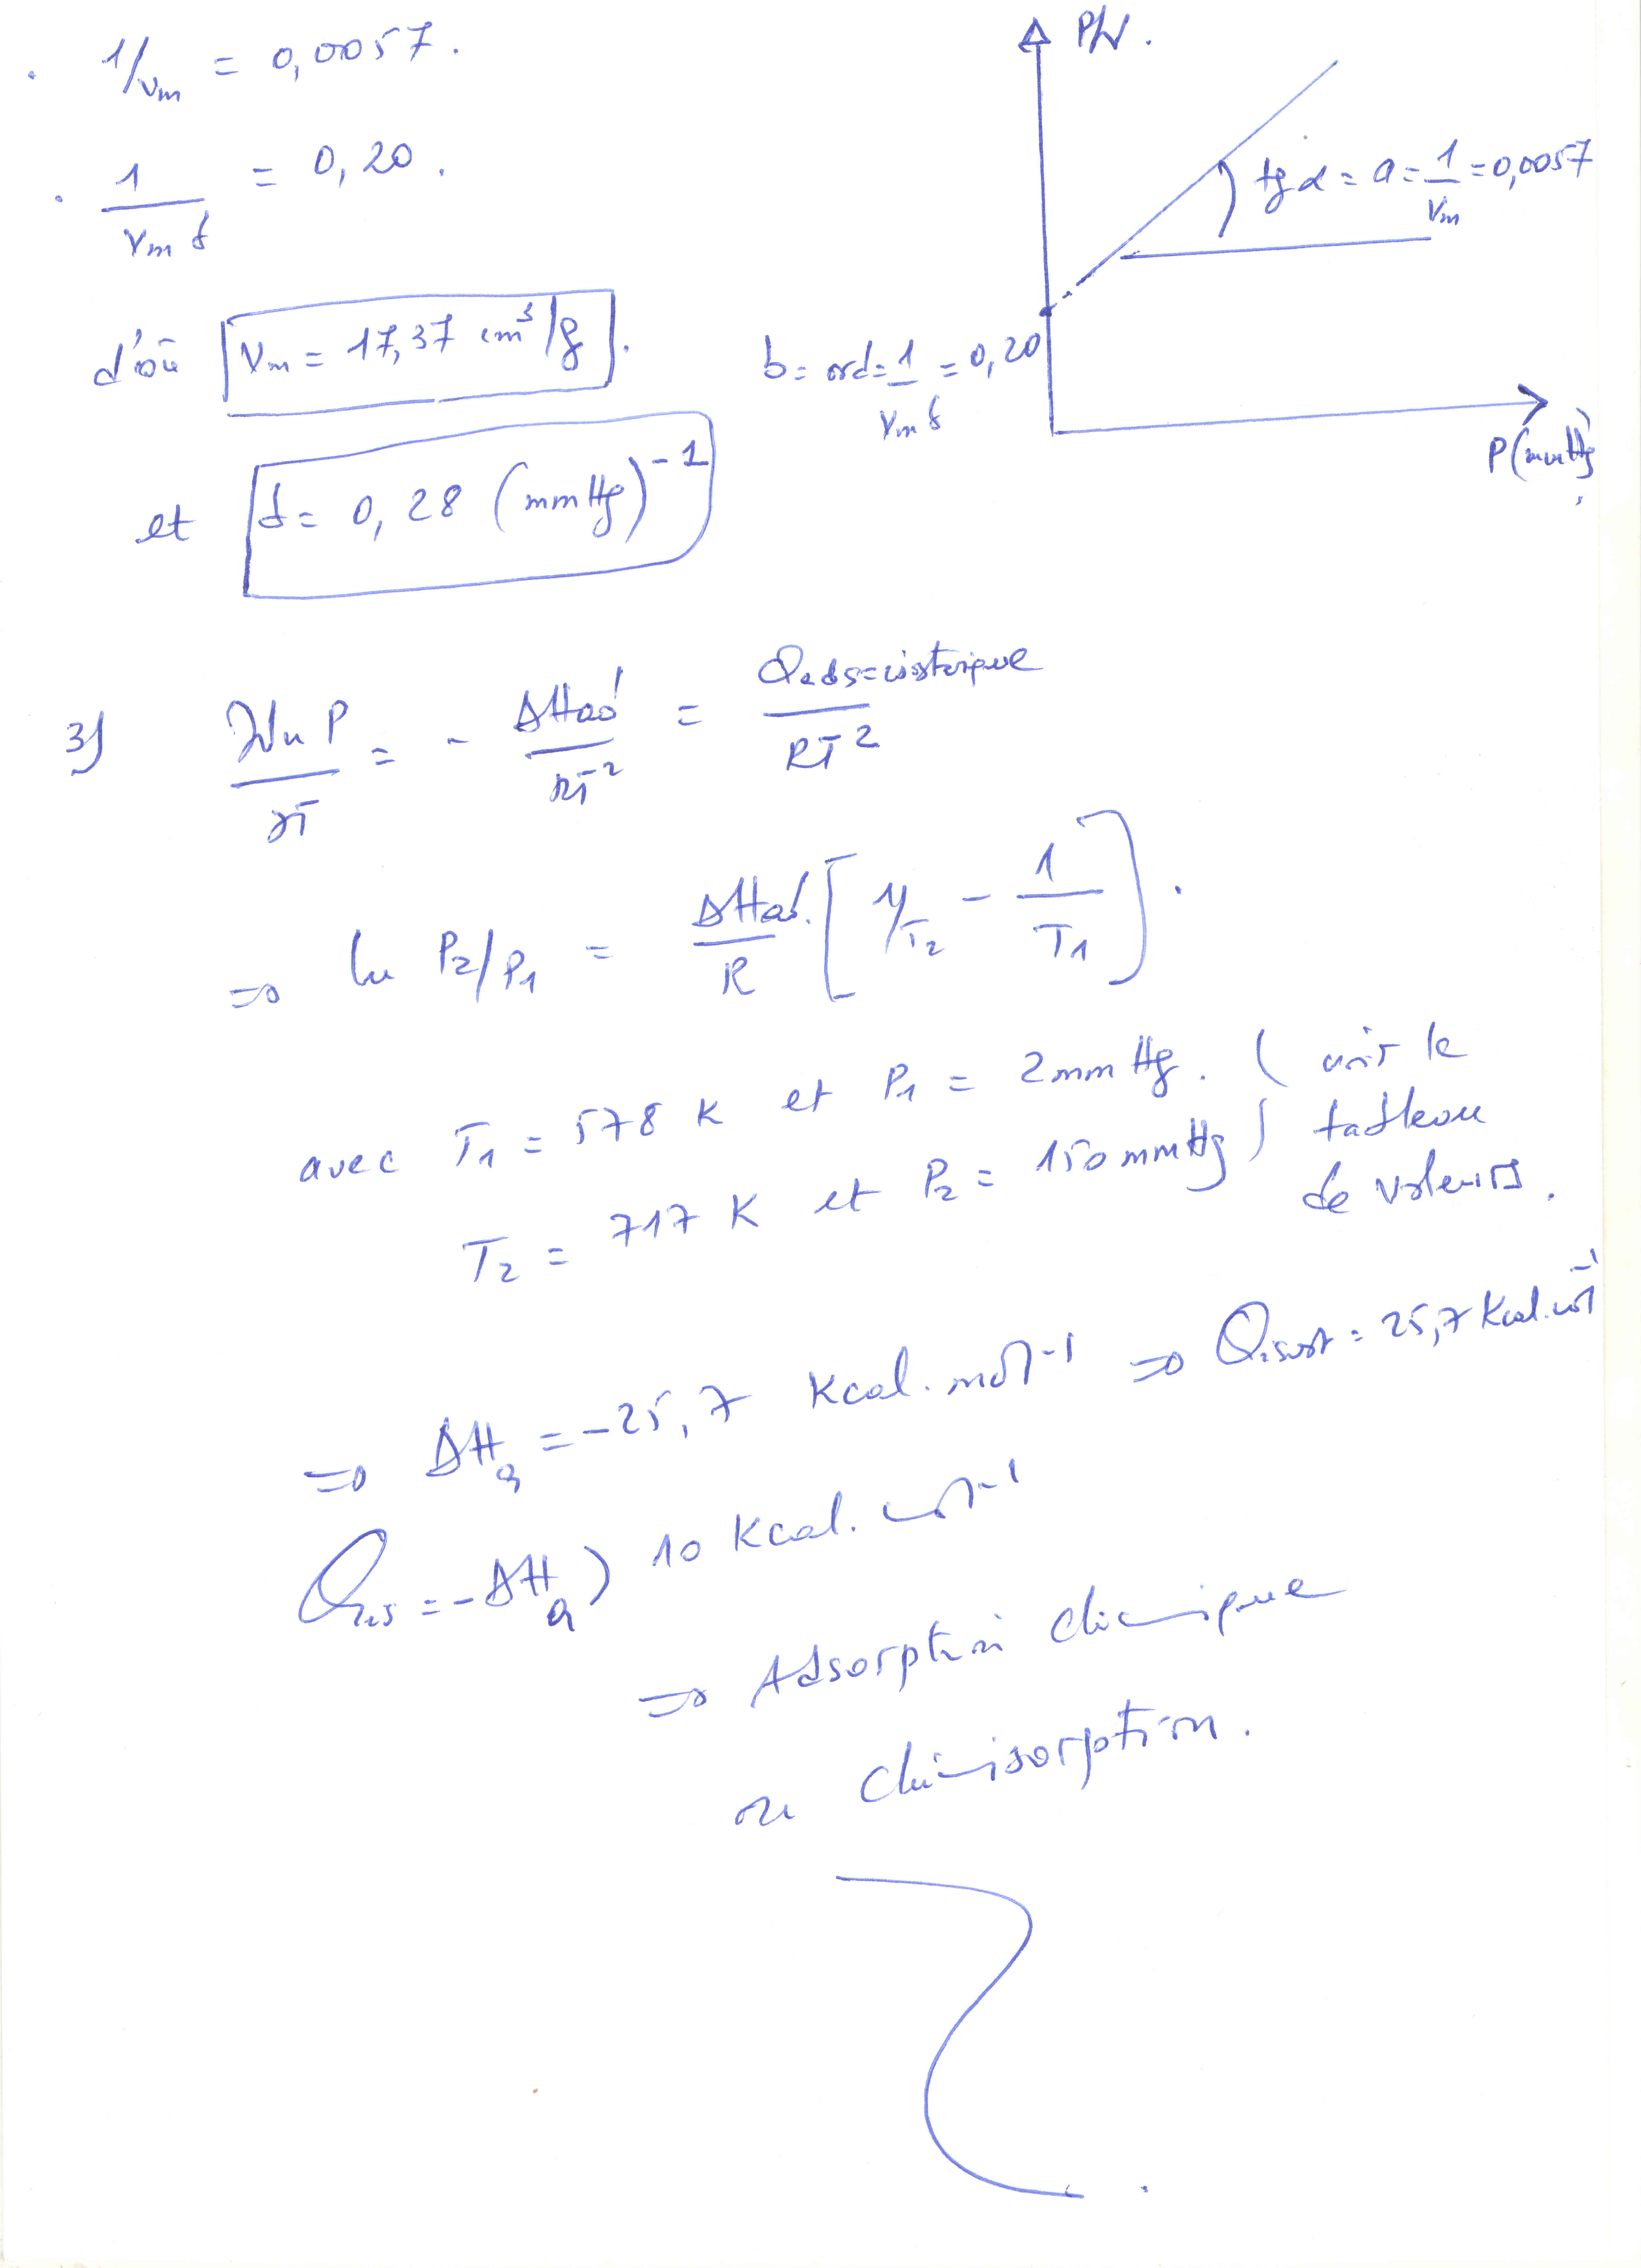 . 1/Vm = 0,0057.
. 1/(Vm b) = 0,20.
d'où Vm = 17,37 cm³/g.
et b = 0,28 (mmHg)⁻¹
P/V.
tg α = a = 1/Vm = 0,0057
b = ord = 1/(Vm b) = 0,20
P(mmHg)
3) ∂ln P/∂T = - ΔHad/RT² = Qads=isosterique/RT²
=> ln P₂/P₁ = ΔHad/R [1/T₂ - 1/T₁].
avec T₁ = 578 K et P₁ = 2 mm Hg. (voir le
T₂ = 717 K et P₂ = 150 mmHg) tableau
de valeurs.
=> ΔHa = -25,7 Kcal.mol⁻¹ => Qisost = 25,7 Kcal.mol⁻¹
Qis = -ΔHa > 10 Kcal.mol⁻¹
=> Adsorption chimique
ou chimisorption.